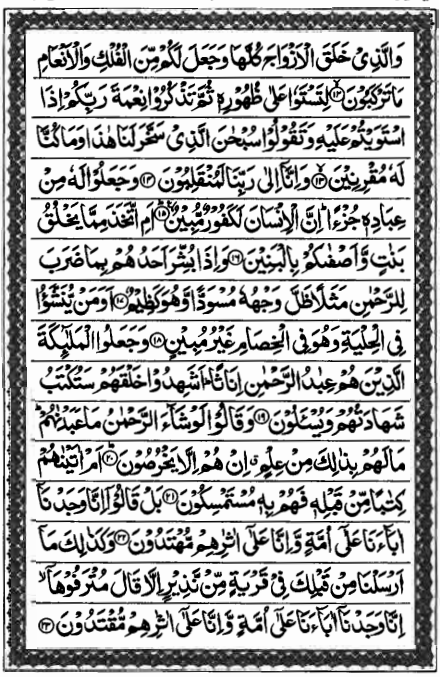 وَالَّذِىْ خَلَقَ الْاَزْوَاجَ كُلَّهَا وَجَعَلَ لَكُمْ مِّنَ الْفُلْكِ وَالْاَنْعَامِ
مَا تَرْكَبُوْنَ ۙ‏﴿۱۲﴾ لِتَسْتَوٗا عَلٰى ظُهُوْرِهٖ ثُمَّ تَذْكُرُوْا نِعْمَةَ رَبِّكُمْ اِذَا
اسْتَوَيْتُمْ عَلَيْهِ وَتَقُوْلُوْا سُبْحٰنَ الَّذِىْ سَخَّرَ لَنَا هٰذَا وَمَا كُنَّا
لَهٗ مُقْرِنِيْنَ ۙ‏﴿۱۳﴾ وَاِنَّاۤ اِلٰى رَبِّنَا لَمُنْقَلِبُوْنَ ﴿۱۴﴾ وَجَعَلُوْا لَهٗ مِنْ
عِبَادِهٖ جُزْءًا ؕ اِنَّ الْاِنْسَانَ لَكَفُوْرٌ مُّبِيْنٌ ؕ﴿۱۵﴾ اَمِ اتَّخَذَ مِمَّا يَخْلُقُ
بَنٰتٍ وَّاَصْفٰٮكُمْ بِالْبَنِيْنَ ﴿۱۶﴾ وَاِذَا بُشِّرَ اَحَدُهُمْ بِمَا ضَرَبَ
لِلرَّحْمٰنِ مَثَلًا ظَلَّ وَجْهُهٗ مُسْوَدًّا وَّهُوَ كَظِيْمٌ ﴿۱۷﴾ اَوَمَنْ يُّنَشَّؤُا
فِى الْحِلْيَةِ وَهُوَ فِى الْخِصَامِ غَيْرُ مُبِيْنٍ ﴿۱۸﴾ وَجَعَلُوا الْمَلٰٓٮِٕكَةَ
الَّذِيْنَ هُمْ عِبٰدُ الرَّحْمٰنِ اِنَاثًا ؕ اَشَهِدُوْا خَلْقَهُمْ ؕ سَتُكْتَبُ
شَهَادَتُهُمْ وَيُسْـَٔلُوْنَ ﴿۱۹﴾ وَقَالُوْا لَوْ شَآءَ الرَّحْمٰنُ مَا عَبَدْنٰهُمْ ؕ
مَا لَهُمْ بِذٰلِكَ مِنْ عِلْمٍ ۗ اِنْ هُمْ اِلَّا يَخْرُصُوْنَ ؕ﴿۲۰﴾ اَمْ اٰتَيْنٰهُمْ
كِتٰبًا مِّنْ قَبْلِهٖ فَهُمْ بِهٖ مُسْتَمْسِكُوْنَ ﴿۲۱﴾ بَلْ قَالُوْۤا اِنَّا وَجَدْنَاۤ
اٰبَآءَنَا عَلٰٓى اُمَّةٍ وَّاِنَّا عَلٰٓى اٰثٰرِهِمْ مُّهْتَدُوْنَ ﴿۲۲﴾ وَكَذٰلِكَ مَاۤ
اَرْسَلْنَا مِنْ قَبْلِكَ فِىْ قَرْيَةٍ مِّنْ نَّذِيْرٍ اِلَّا قَالَ مُتْرَفُوْهَاۤ ۙ
اِنَّا وَجَدْنَاۤ اٰبَآءَنَا عَلٰٓى اُمَّةٍ وَّاِنَّا عَلٰٓى اٰثٰرِهِمْ مُّقْتَدُوْنَ ﴿۲۳﴾